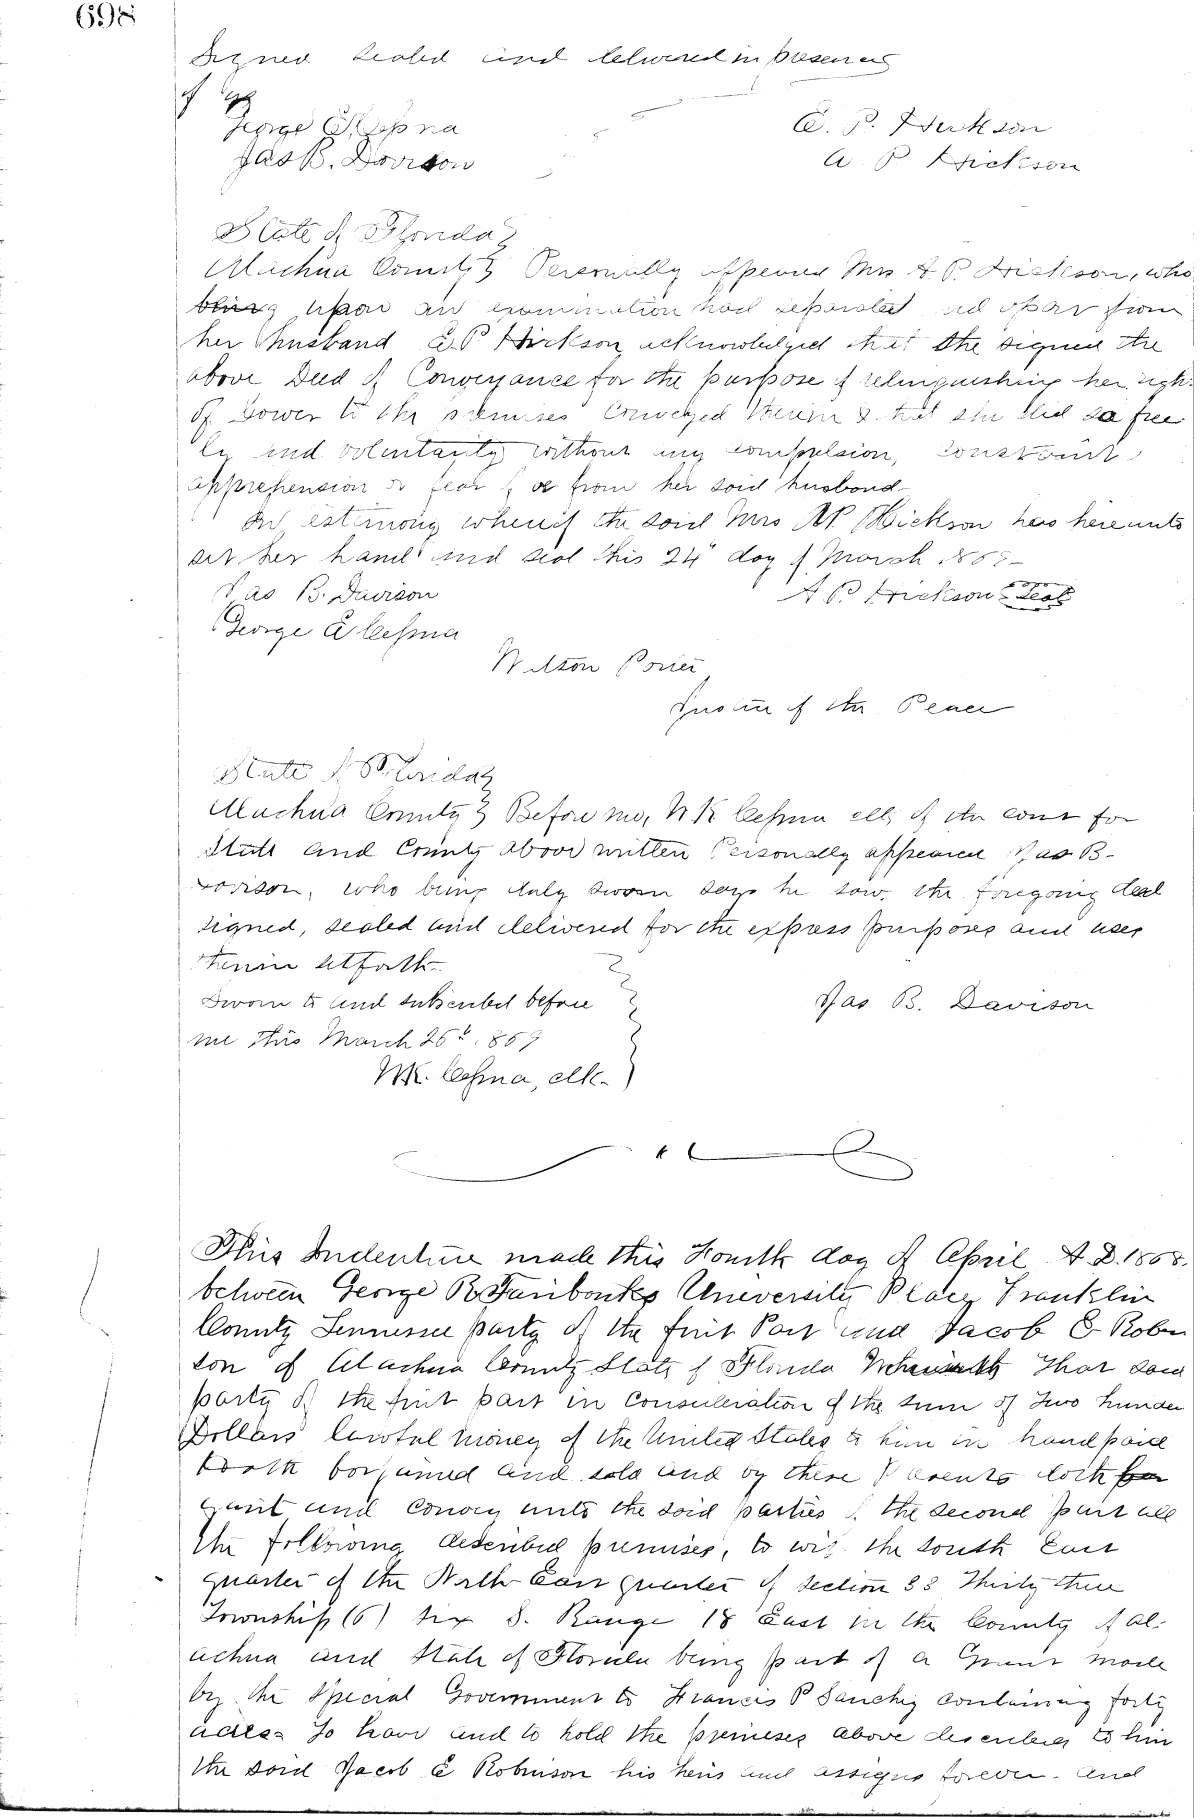 698
Signed sealed and delivered in presence
of us
George E Cessna
E. P. Hickson
Jas B. Davison
A P Hickson
State of Florida
Alachua County Personally appeared Mrs A. P. Hickson, who
being upon an examination had separated and apart from
her husband E. P Hickson acknowledged that She signed the
above Deed of Conveyance for the purpose of relinquishing her right
of Dower to the premises conveyed therein & that she did so free
ly and voluntarily without any compulsion, constraint
apprehension or fear of or from her said husband
In testimony whereof the said Mrs AP Hickson has hereunto
set her hand and seal this 24" day of March 1869 -
Jas B. Davison
A P. Hickson Seal
George E Cessna
Watson Porter
Justice of the Peace
State of Florida
Alachua County Before me, W K Cessna clk of the court for
State and County above written Personally appeared Jas B-
Davison, who being duly sworn says he saw the foregoing deed
signed, sealed and delivered for the express purposes and uses
therein setforth-
Sworn to and subscribed before
Jas B. Davison
me this March 26th 1869
WK. Cessna, clk.
This Indenture made this Fourth day of April A. D. 1868.
between George R Fairbanks University Place Franklin
County Tennessee party of the first Part and Jacob E Robin
son of Alachua County State of Florida Witnesseth That said
party of the first part in consideration of the sum of Two hundred
Dollars lawful money of the United States to him in hand paid
hath bargained and sold and by these Presents doth
grant and convey unto the said parties of the second part all
the following described premises, to wit. the south East
quarter of the North East quarter of section 33 Thirty three
Township (6) six S. Range 18 East in the County of Al-
achua and State of Florida being part of a Grant made
by the Special Government to Francis P Sanchez containing forty
acres- To have and to hold the premises above described to him
the said Jacob E Robinson his heirs and assigns forever- and